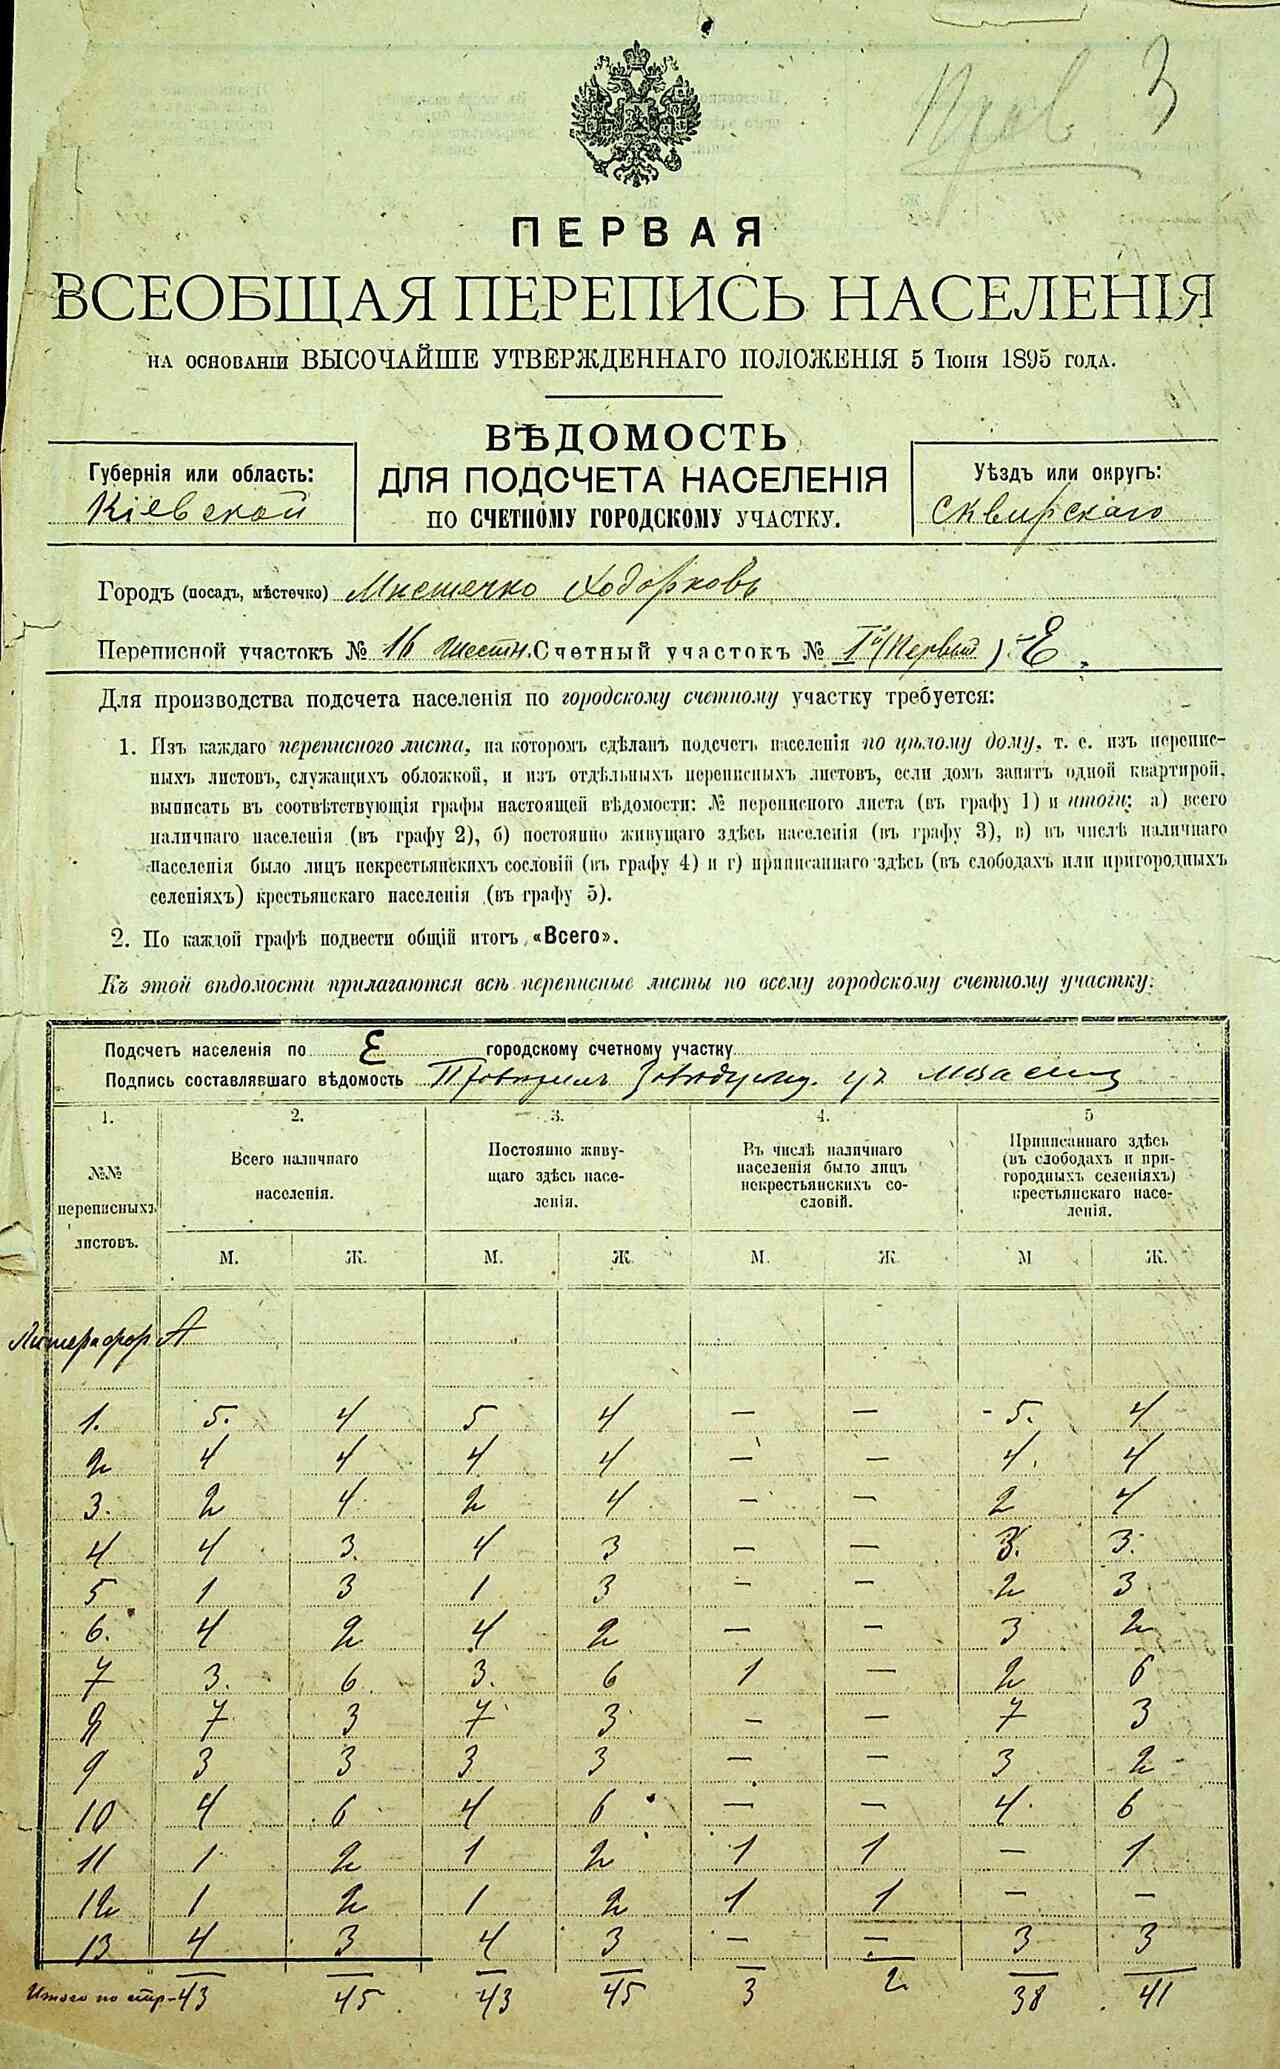 Пров 3
ПЕРВАЯ
ВСЕОБЩАЯ ПЕРЕПИСЬ НАСЕЛЕНІЯ
НА ОСНОВАНІИ ВЫСОЧАЙШЕ УТВЕРЖДЕННАГО ПОЛОЖЕНІЯ 5 Іюня 1895 ГОДА.
ВѢДОМОСТЬ
ДЛЯ ПОДСЧЕТА НАСЕЛЕНІЯ
ПО СЧЕТНОМУ ГОРОДСКОМУ УЧАСТКУ.
Губернія или область:
Кіевской
Уѣздъ или округъ:
Сквирскаго
Городъ (посадъ, мѣстечко) Мистечко Ходорковъ
Переписной участокъ № 16 шестн. Счетный участокъ № Iй (Первый) Е.
Для производства подсчета населенія по городскому счетному участку требуется:
1. Изъ каждаго переписного листа, на которомъ сдѣланъ подсчетъ населенія по цѣлому дому, т. е. изъ перепис-
ныхъ листовъ, служащихъ обложкой, и изъ отдѣльныхъ переписныхъ листовъ, если домъ занятъ одной квартирой,
выписать въ соотвѣтствующія графы настоящей вѣдомости: № переписного листа (въ графу 1) и итоги: а) всего
наличнаго населенія (въ графу 2), б) постоянно живущаго здѣсь населенія (въ графу 3), в) въ числѣ наличнаго
населенія было лицъ некрестьянскихъ сословій (въ графу 4) и г) приписаннаго здѣсь (въ слободахъ или пригородныхъ
селеніяхъ) крестьянскаго населенія (въ графу 5).
2. По каждой графѣ подвести общій итогъ «Всего».
Къ этой вѣдомости прилагаются всѣ переписные листы по всему городскому счетному участку.
Подсчетъ населенія по Е городскому счетному участку
Подпись составлявшаго вѣдомость
1. 2. 3. 4. 5
№№ переписныхъ листовъ.
Всего наличнаго населенія.
Постоянно живу-
щаго здѣсь насе-
ленія.
Въ числѣ наличнаго
населенія было лицъ
некрестьянскихъ со-
словій.
Приписаннаго здѣсь
(въ слободахъ и при-
городныхъ селеніяхъ)
крестьянскаго насе-
ленія.
М. Ж. М. Ж. М. Ж. М Ж.
А
1. 5. 4 5 4 — — - 5. 4
2 4 4 4 4 — — 4. 4
3. 2 4 2 4 — — 2 4
4 4 3. 4 3 — — 3. 3.
5 1 3 1 3 — — 2 3
6. 4 2 4 2 — — 3 2
7 3. 6. 3. 6 1 — 2 6
8 7 3 7 3 — — 7 3
9 3 3 3 3 — — 3 2
10 4 6 4 6 — — 4. 6
11 1 2 1 2 1 1 — 1
12 1 2 1 2 1 1 — —
13 4 3 4 3 — — 3 3
Итого по стр- 43 45. 43 45 3 2 38 41